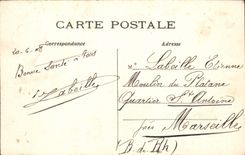 CARTE POSTALE
Correspondance
Adresse
20-6-08
Bonne Santé à tous
Labeille
Mr Labeille Etienne
Moulin du Platane
Quartier St Antoine
près Marseille
(B. d. Rh)